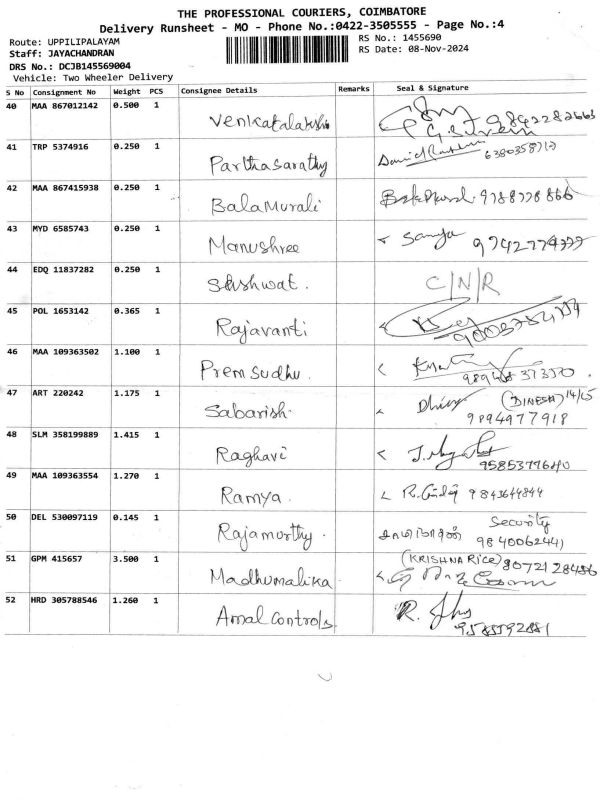 THE PROFESSIONAL COURIERS, COIMBATORE
Delivery Runsheet - MO - Phone No.:0422-3505555 - Page No.:4
Route: UPPILIPALAYAM RS No.: 1455690
Staff: JAYACHANDRAN RS Date: 08-Nov-2024
DRS No.: DCJB145569004
Vehicle: Two Wheeler Delivery
S No Consignment No Weight PCS Consignee Details Remarks Seal & Signature
40 MAA 867012142 0.500 1 Venkatalakshmi
41 TRP 5374916 0.250 1 Parthasarathy
42 MAA 867415938 0.250 1 BalaMurali 9788778866
43 MYD 6585743 0.250 1 Manushree Sanya
44 EDQ 11837282 0.250 1 Shshwat. C/N/R
45 POL 1653142 0.365 1 Rajavanti
46 MAA 109363502 1.100 1 Prem Sudhu.
47 ART 220242 1.175 1 Sabarish. (DINESH) 14/15
9894977918
48 SLM 358199889 1.415 1 Raghavi
9585377640
49 MAA 109363554 1.270 1 Ramya. 9843644844
50 DEL 530097119 0.145 1 Rajamurthy. Security
9840062441
51 GPM 415657 3.500 1 Madhumalika (KRISHNA RICE) 8072128486
52 HRD 305788546 1.260 1 Amal Controls.
9585592881